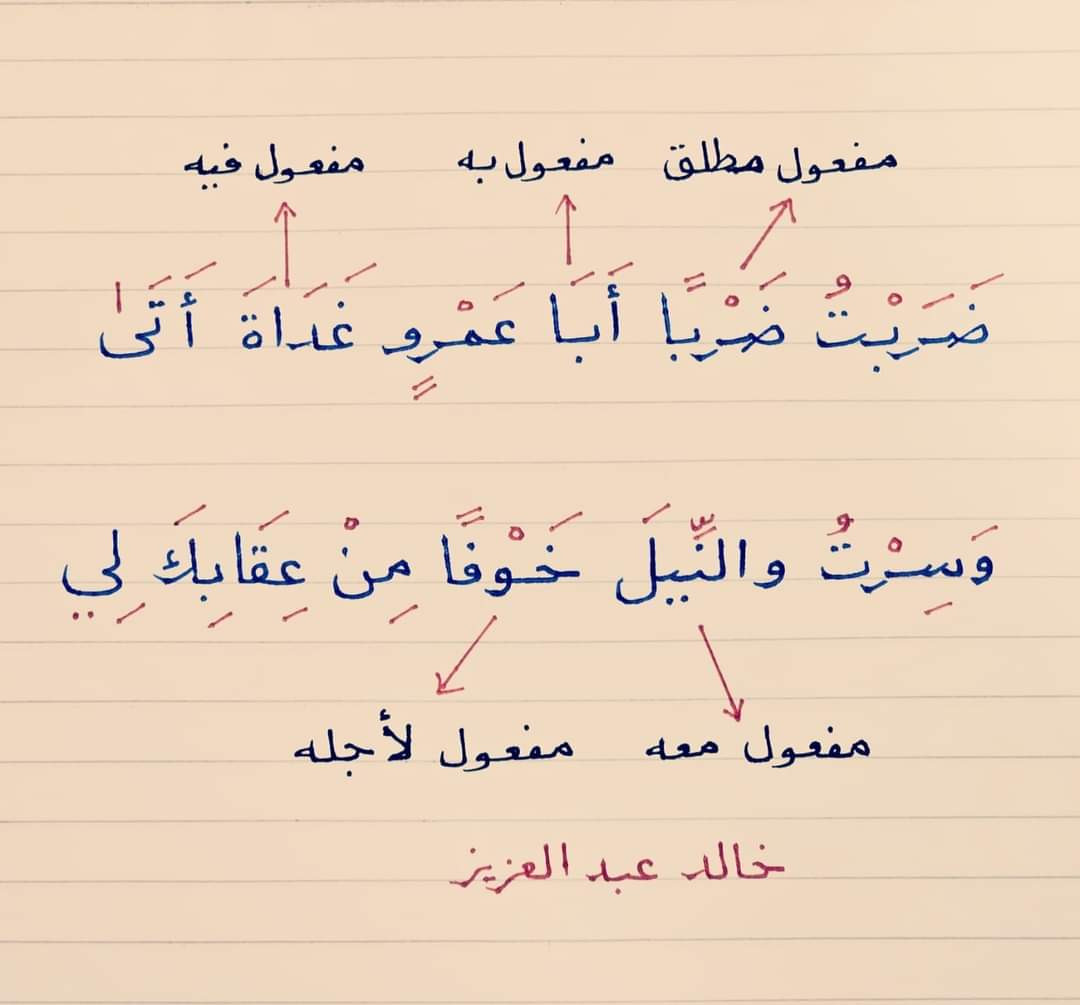 مفعول مطلق مفعول به مفعول فيه
ضَرَبْتُ ضَرْبًا أَبَا عَمْرٍو غَدَاةَ أَتَىٰ
وَسِرْتُ والنِّيلَ خَوْفًا مِنْ عِقَابِكَ لِي
مفعول معه مفعول لأجله
خالد عبد العزيز